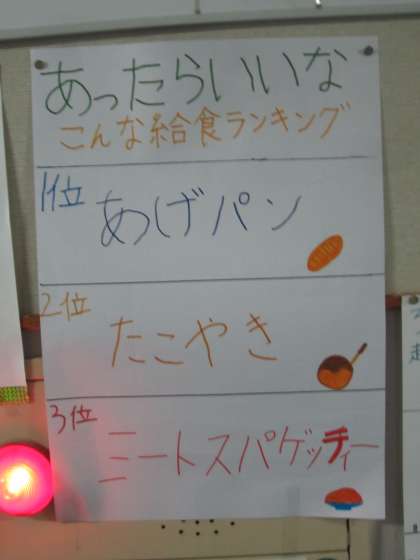 あったらいいな
こんな給食ランキング
1位
あげパン
2位
たこやき
3位
ミートスパゲッティー